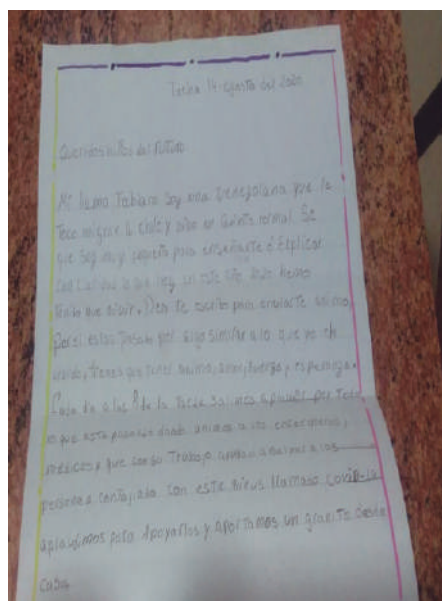 Fecha 14-agosto del 2020
Queridos niños del futuro
Me llamo Fabiana soy una venezolana que le
toco migrar a chile y vivo en Quinta normal. Se
que soy muy pequeña para enseñarte o Explicar
con claridad lo que hoy en este año 2020 hemos
tenido que vivir. Te escribo para enviarte animo,
por si estas pasado por algo similar a lo que yo
tienes que tener animo, amor, fuerza y esperanza.
Cada dia a las 9 de la tarde salimos a aplaudir por todo
lo que esta pasando dando animos a los enfermeros,
médicos, que con su trabajo ayudan a las
personas contajiada con este virus llamado covid-19
aplaudimos para Apoyarlos y aportamos un granito desde
casa